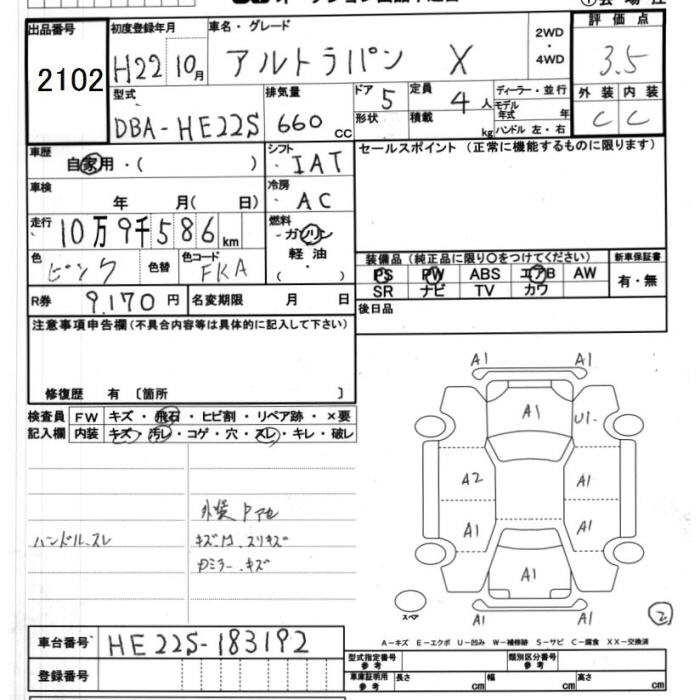 出品番号 初度登録年月 車名・グレード 2WD ・ 4WD 評価点
2102 H22 10月 アルトラパン X 3.5
型式 排気量 ドア 定員 ディーラー・並行 外装 内装
DBA-HE22S 660 CC 5 4人 モデル年式 年 C C
形状 積載 kg ハンドル 左・右
車歴 シフト セールスポイント (正常に機能するものに限ります)
自家用・( ) IAT
車検 冷房
年 月( 日) AC
走行 燃料
10万9千586km ガソリン
色 色替 色コード 軽油 装備品 (純正品に限り○をつけてください) 新車保証書
ピンク FKA ・( ) PS PW ABS エアB AW 有・無
SR ナビ TV カワ
R券 9,170円 名変期限 月 日 後日品
注意事項申告欄(不具合内容等は具体的に記入して下さい)
修復歴 有 〔箇所 〕
検査員 FW キズ・飛石・ヒビ割・リペア跡・×要
記入欄 内装 キズ・汚レ・コゲ・穴・スレ・キレ・破レ
A1 A1
A1 U1
A2 A1
A1 A1
A1
A1 A1
外装 Pアセ
ハンドル、スレ キズ、凹、スリキズ
Dミラー、キズ
スペア
2
A-キズ E-エクボ U-凹み W-補修跡 S-サビ C-腐食 XX-交換済
車台番号 HE22S-183192
型式指定番号 参考 類別区分番号 参考
登録番号 車庫証明用 参考 長さ cm 幅 cm 高さ cm